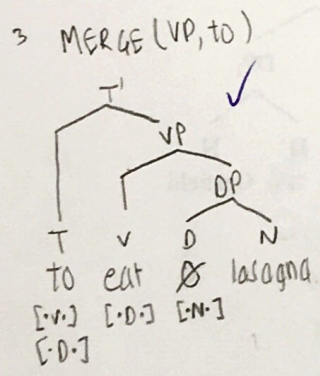 3 MERGE (VP, to)
T'
VP
DP
T V D N
to eat Ø lasagna
[·V·] [·D·] [·N·]
[·D·]